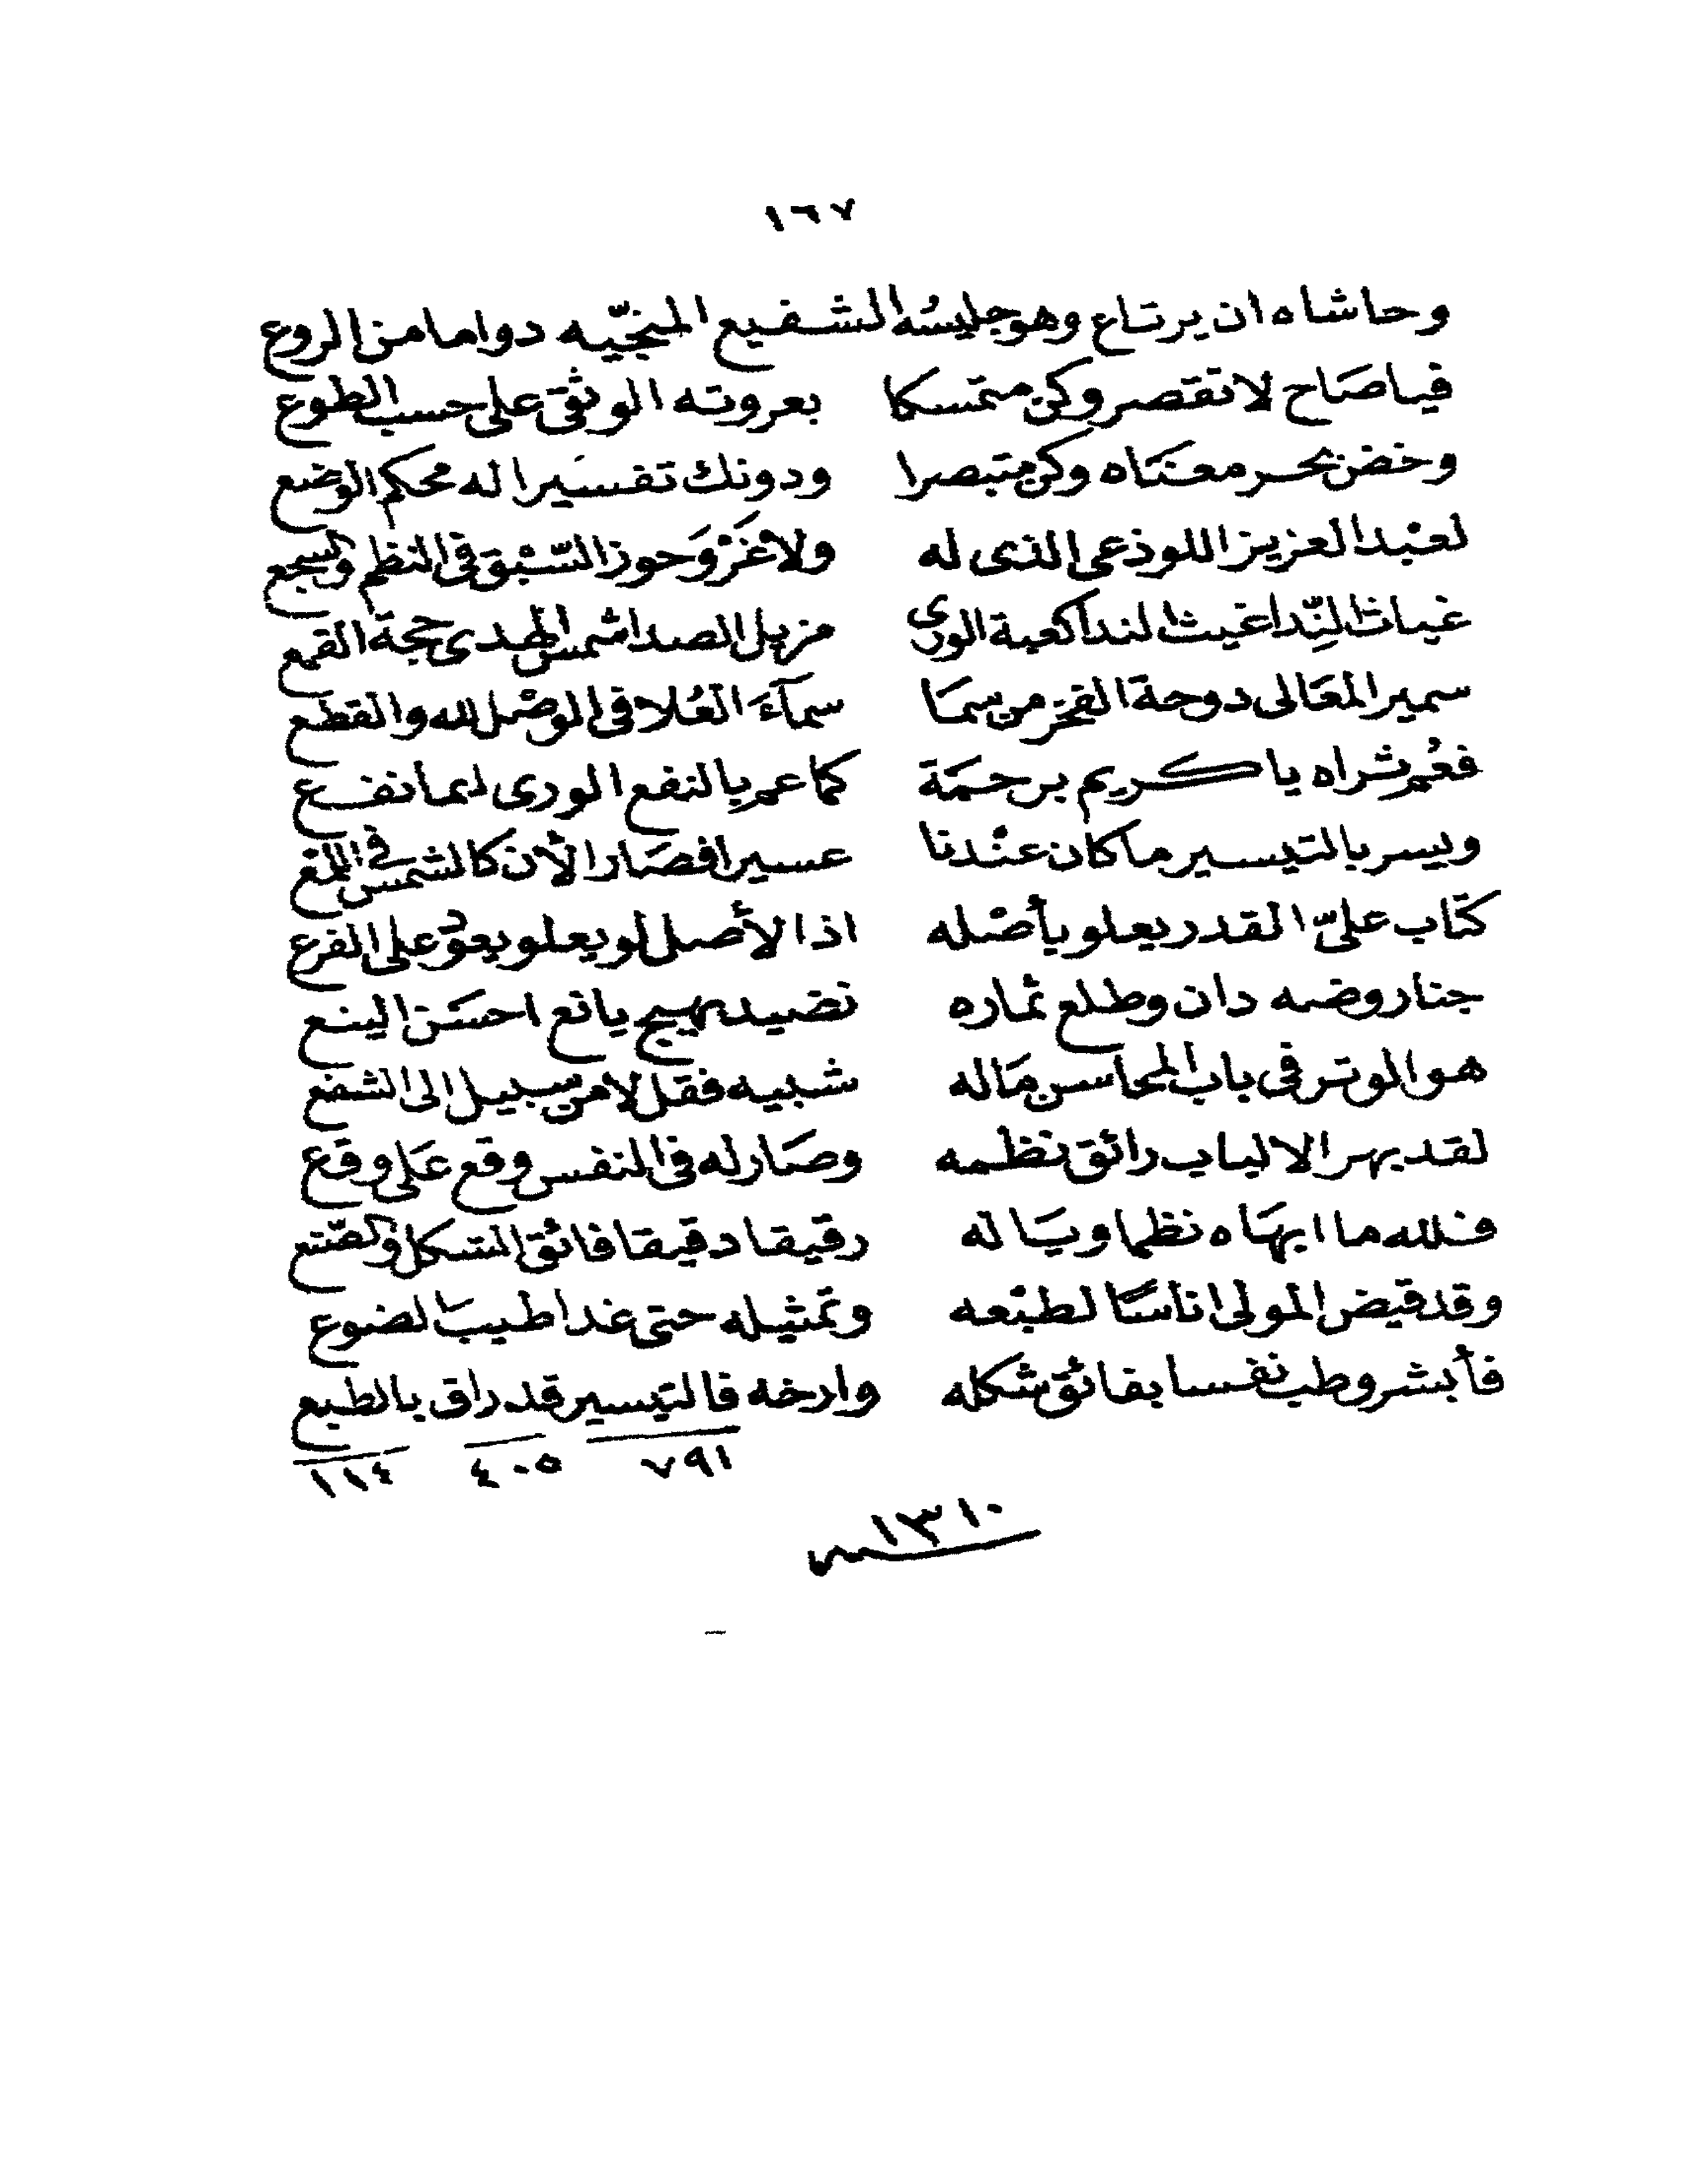 ١٦٧
وحاشاه ان يرتاع وهو جليسُه الشفيع المنجّيه دواما من الروع
فياصَاح لا تقصر وكن متمسكا بعروته الوثقى على حسب الطوع
وخض بحر معنَاه وكن متبصرا ودونك تفسَيرا له محكم الوضع
لعبْد العزيز اللوذعى الذى له ولا غَرْوَ حوز السّبْق فى النظم والسجع
غياث النِّدا غيث الندا كعبة الورى مزيل الصدا شمس الهدى حجة القمع
سمير المعَالى دوحة الفخر من سمَا سمآءَ العُلا فى الوصْل لله والقطع
فعُم ثراه يا كريم برحمَة كما عم بالنفع الورى ايما نفع
ويسر بالتيسير ما كان عنْدنا عسيرا فصَار الأن كالشمس فى اللمع
كتاب علىّ القدر يعلو بأصْله اذا الأصل لو يعلو يعود على الفرع
جنا روضه دان وطلع ثماره نضيد بهيج يانع احسَن الينع
هو الوتر فى باب المحاسن مَاله شبيه فقل لا من سبيل الى الشفع
لقد بهر الالباب رائق نظْمه وصَار له فى النفس وقع عَلى وقع
فلله ما ابهَاه نظما ويَا له رقيقا دقيقا فائق الشكل والصّنع
وقد قيض المولى اناسًا لطبْعه وتمثيله حتى غدا طيبَ الضوع
فأبشر وطب نفسا بفائق شكله وارخه فالتيسير قد راق بالطبع
٧٩١ ٤٠٥ ١١٤
١٣١٠